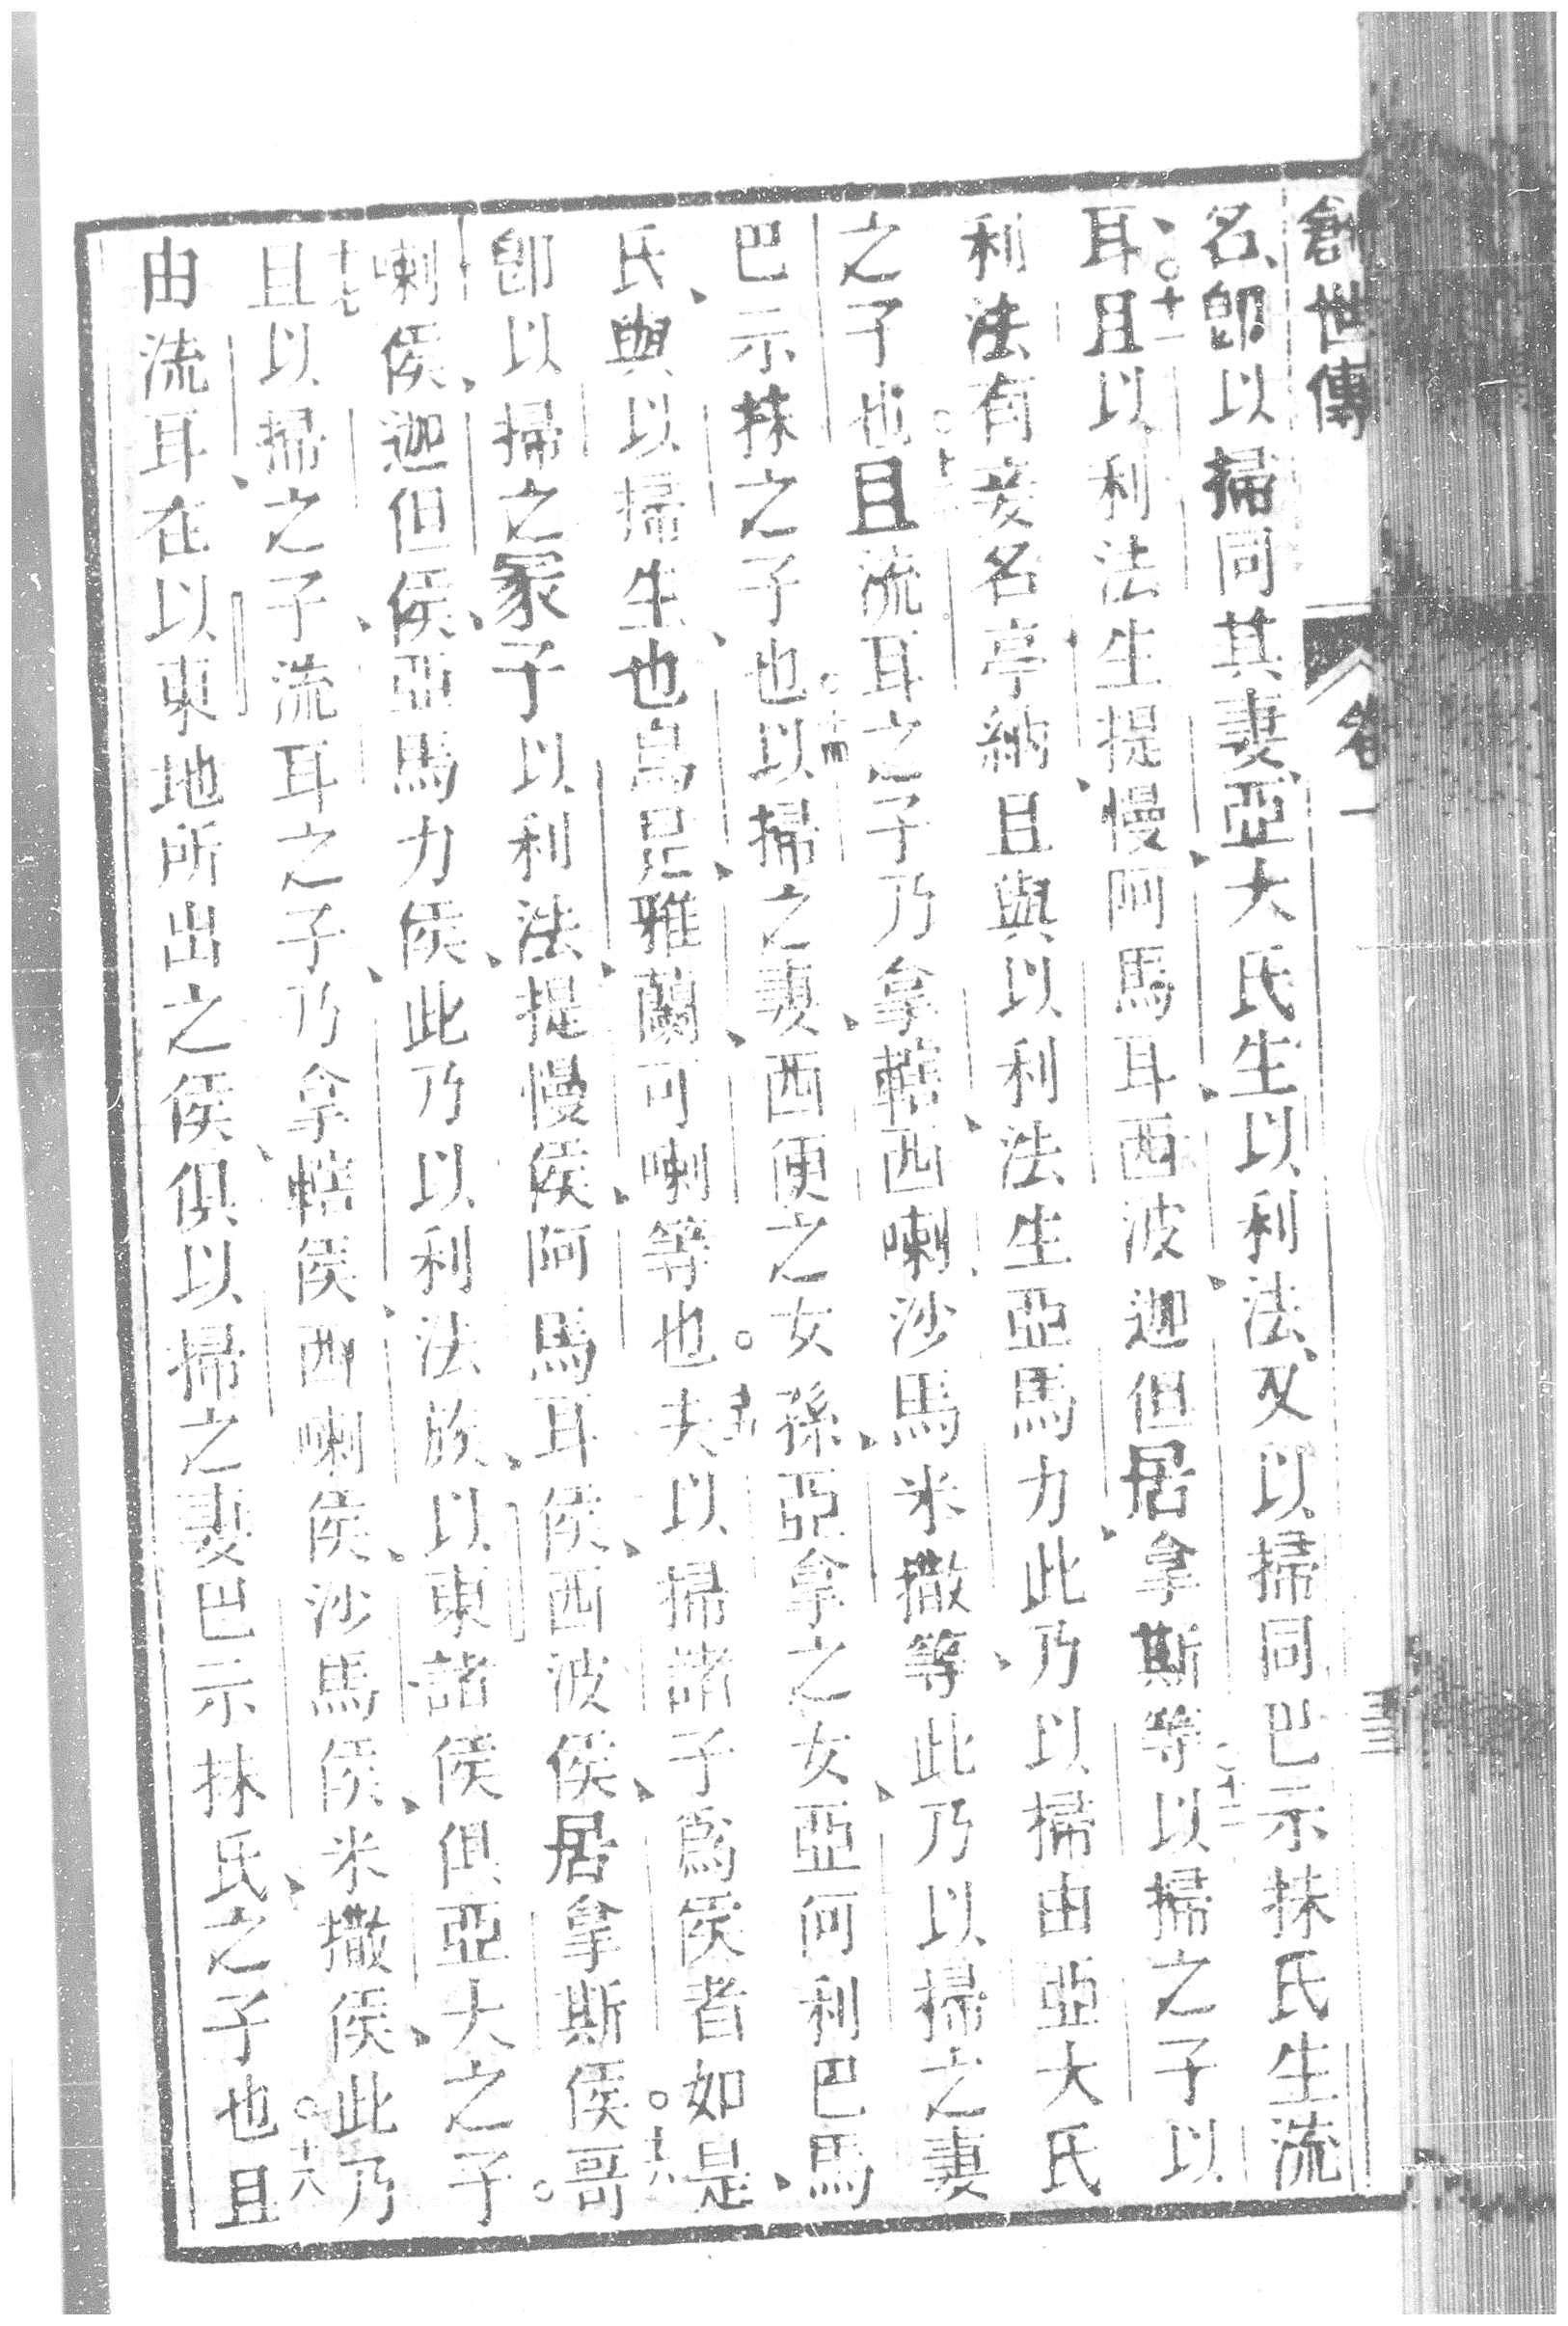 創世傳 卷一
名、卽以掃同其妻、亞大氏生以利法、又以掃同巴示抹氏生流
耳、○十一且以利法生提慢阿馬耳西波迦但居拿斯等○十二以掃之子以
利法有妾名亭納、且與以利法生亞馬力、此乃以掃由亞大氏
之子也○十三且流耳之子、乃拿轄、西喇、沙馬、米撒等、此乃以掃之妻
巴示抹之子也○十四以掃之妻、西便之女孫、亞拿之女、亞何利巴馬
氏、與以掃生也、烏是、雅蘭、可喇等也。十五夫以掃諸子爲侯者如是、
卽以掃之冢子以利法、提慢侯、阿馬耳侯、西波侯、居拿斯侯、○十六哥
喇侯、迦但侯、亞馬力侯、此乃以利法族、以東諸侯、俱亞大之子。
十七且以掃之子、流耳之子、乃拿轄侯、西喇侯、沙馬侯、米撒侯、此乃
由流耳、在以東地所出之侯、俱以掃之妻巴示抹氏、之子也○十八且
三三